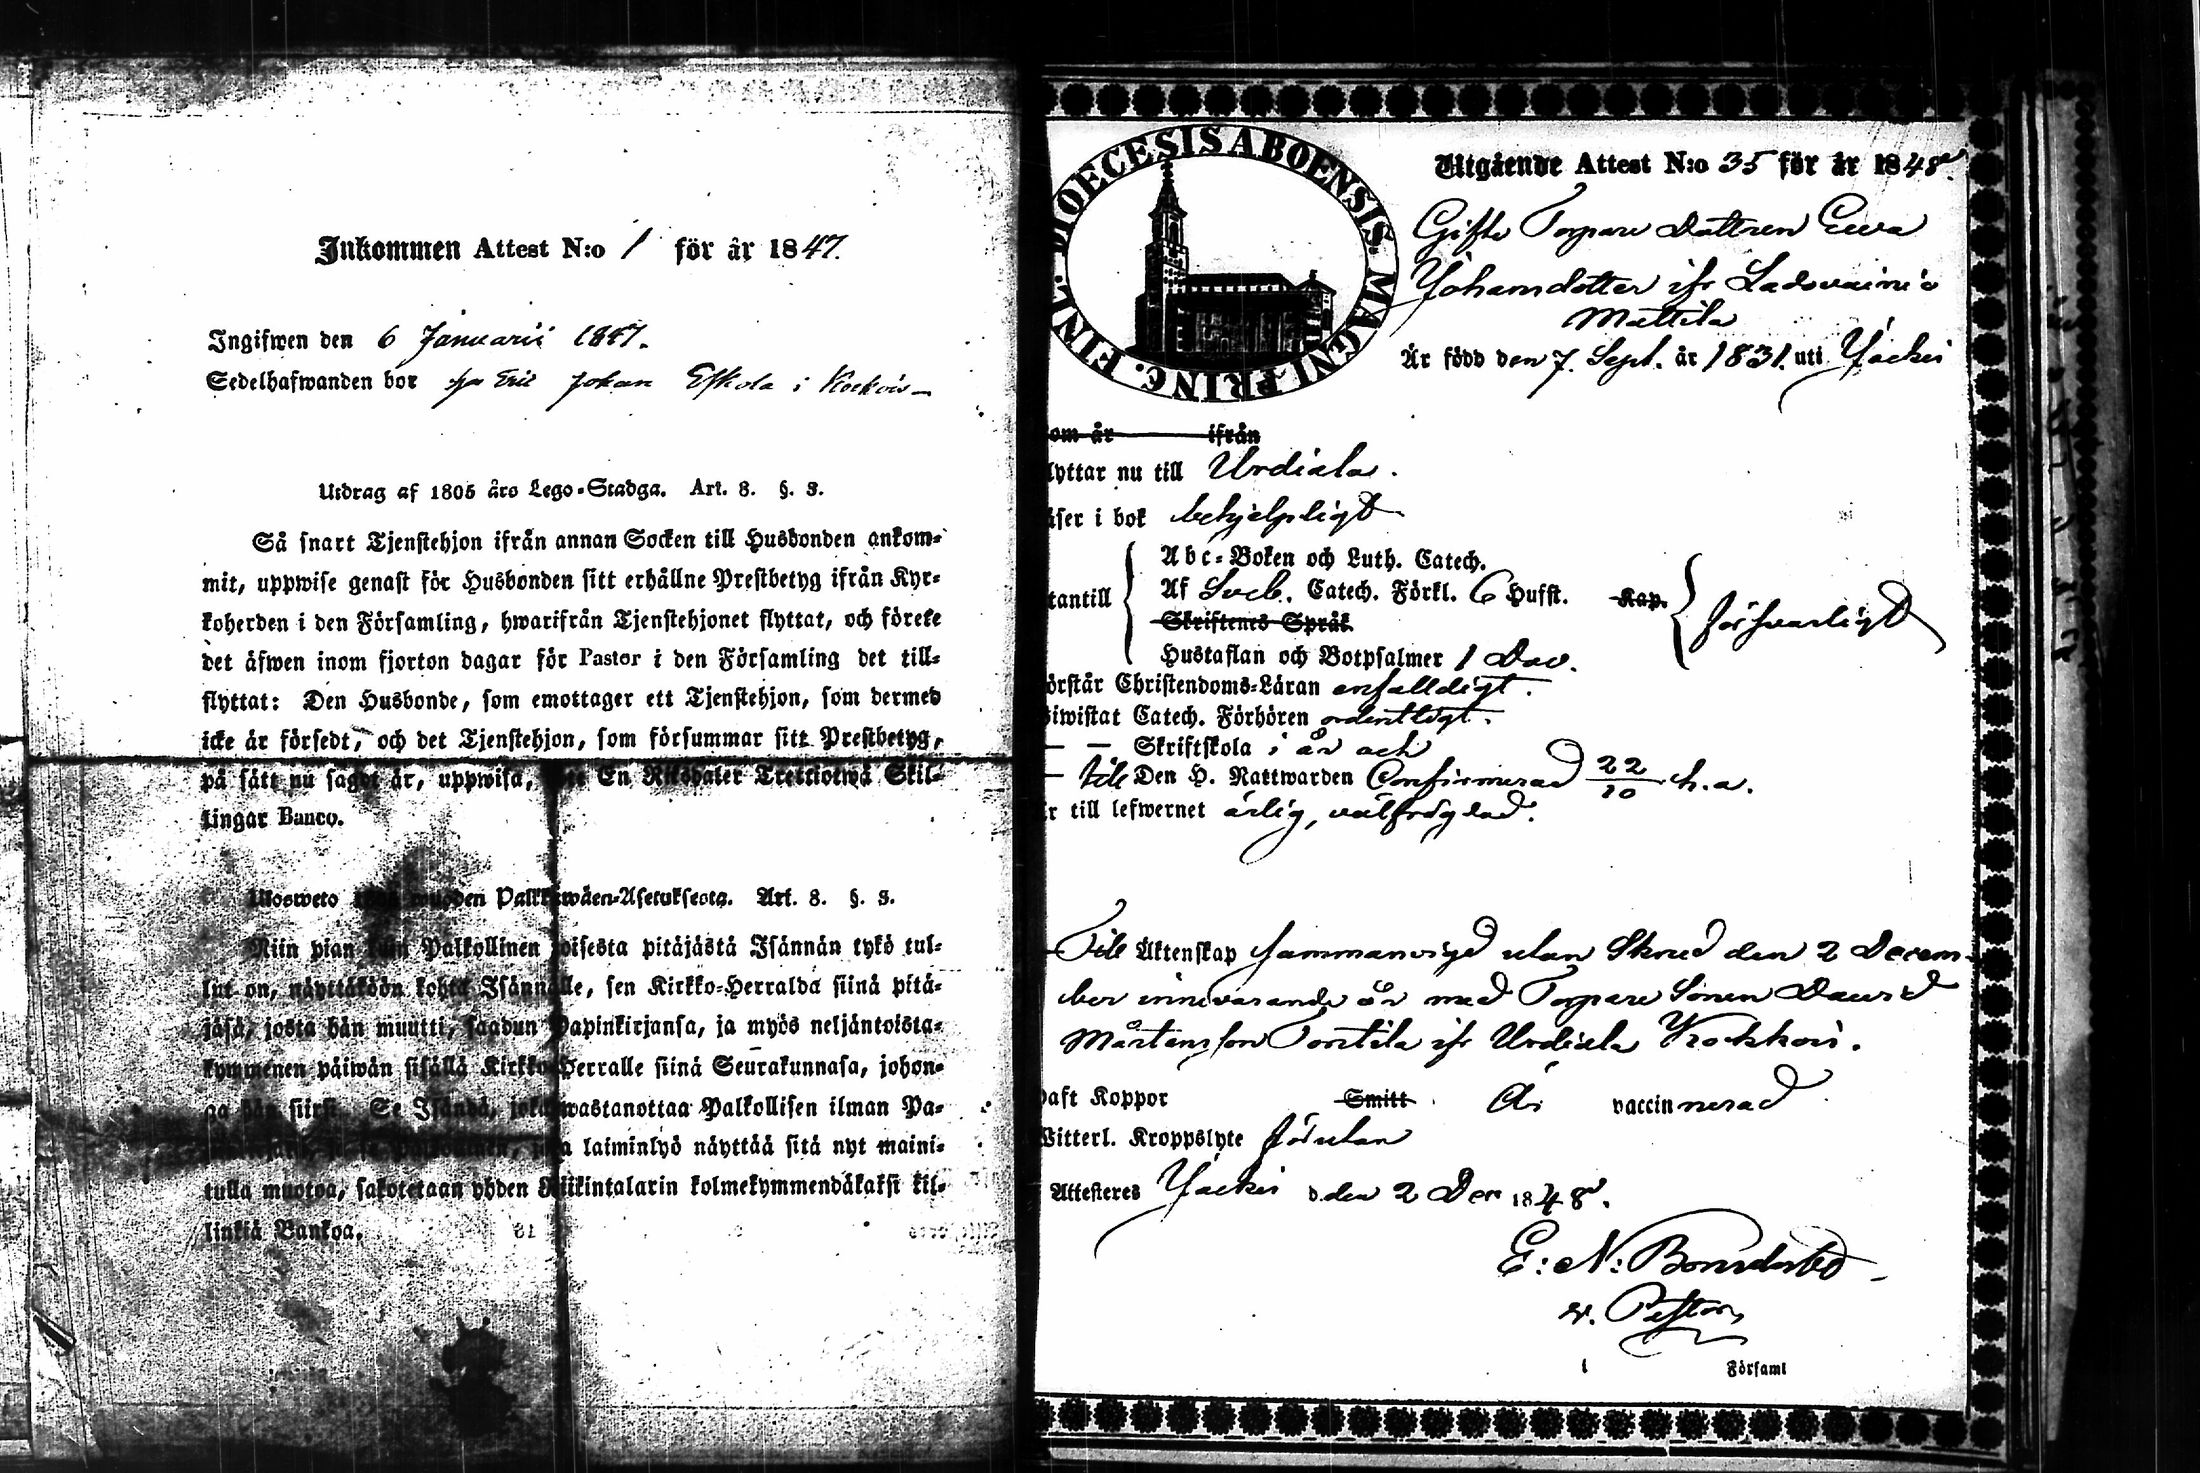 Inkommen Attest N:o 1 för år 1847.
Ingifwen den 6 Januarii 1847.
Sedelhafwanden bor på Eric Johan Eskola i Kockois
Utdrag af 1805 års Lego-Stadga. Art. 8. §. 3.
Så snart Tjenstehjon ifrån annan Socken till Husbonden ankom-
mit, uppwise genast för Husbonden sitt erhållne Prestbetyg ifrån Kyr-
koherden i den Församling, hwarifrån Tjenstehjonet flyttat, och förete
det äfwen inom fjorton dagar för Pastor i den Församling det till-
flyttat: Den Husbonde, som emottager ett Tjenstehjon, som dermed
icke är försedt, och det Tjenstehjon, som försummar sitt Prestbetyg,
på sätt nu sagdt är, uppwisa, En Riksdaler Trettiotwå Skil-
lingar Banco.
Ulosweto muoden Palkkawäen-Asetuksesta. Art. 8. §. 3.
Niin pian kuin Palkollinen toisesta pitäjästä Isännän tykö tul-
lut on, näyttäköön kohta Isännälle, sen Kirkko-Herralda siinä pitä-
jäsä, josta hän muutti, saadun Papinkirjansa, ja myös neljäntoista-
kymmenen päiwän sisällä Kirkko-Herralle siinä Seurakunnasa, johon-
ga hän siirsi. Se Isändä, joka wastanottaa Palkollisen ilman Pa-
laiminlyö näyttää sitä nyt maini-
tulla muotoa, sakotetaan yhden Riikintalarin kolmekymmendäkaksi kil-
linkiä Bankoa.
DIOECESIS ABOENSIS. MAGNI PRINC. FINL.
Utgående Attest N:o 35 för år 1848.
Gifte Torpare Dottren Ewa
Johansdotter ifr Ladowainio
Mattila
Är född den 7. Sept. år 1831. uti Jockis
om år ifrån
lyttar nu till Urdiala.
äser i bok behjelpligt
tantill
Abc-Boken och Luth. Catech.
Af Sveb. Catech. Förkl. 6 Hufst. Kap.
försvarligt
Skriftenes Språk
Hustaflan och Botpsalmer 1 Dav.
örstår Christendoms-Läran enfalldigt.
iwistat Catech. Förhören ordentligt.
— — Skriftskola i år och
— till Den H. Nattwarden Confirmerad 22/10 h.a.
r till lefwernet ärlig, välfrägdad.
Till Äktenskap sammanvigd utan Skrud den 2 Decem-
ber innevarande år med Torpare Sonen David
Mårtensson Tontila ifr Urdiala Kockois.
haft Koppor Smitt Är vaccinnerad
Witterl. Kroppslyte förutan
Attesteres Jockis d. den 2 Dec 1848.
E: N: Bonsdorff
v. Pastor
i Församl